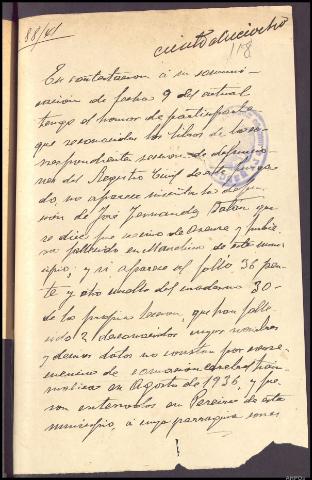 88/41
ciento dieciocho
118
En contestacion á su comuni-
cación de fecha 9 del actual
tengo el honor de participarle
que reconocidos los libros de la co-
rrespondiente sección de defuncio-
nes del Registro Civil de este Juzga
do, no aparece inscrita la defun-
ción de José Fernandez que
se dice fue vecino de Orense y
fallecido en de este muni-
cipio; y si aparece al folio 36 fren-
te y otro vuelto del cuaderno 30-
de la propia Sección, que han falle-
cido 2 desconocidos cuyos nombres
y demas datos no constan por
de
en Agosto de 1936, y fue-
ron enterrados en Pereiro de este
municipio, á cuya parroquia